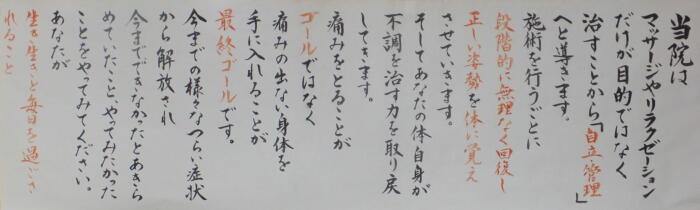 当院は
マッサージやリラクゼーション
だけが目的ではなく
治すことから「自立管理」
へと導きます。
施術を行うごとに
段階的に無理なく回復し
正しい姿勢を体に覚え
させていきます。
そしてあなたの体自身が
不調を治す力を取り戻
してきます。
痛みをとることが
ゴールではなく
痛みの出ない身体を
手に入れることが
最終ゴールです。
今までの様々なつらい症状
から解放され
今までできなかったとあきら
めていたこと、やってみたかった
ことをやってみてください。
あなたが
生き生きと毎日を過ごさ
れること